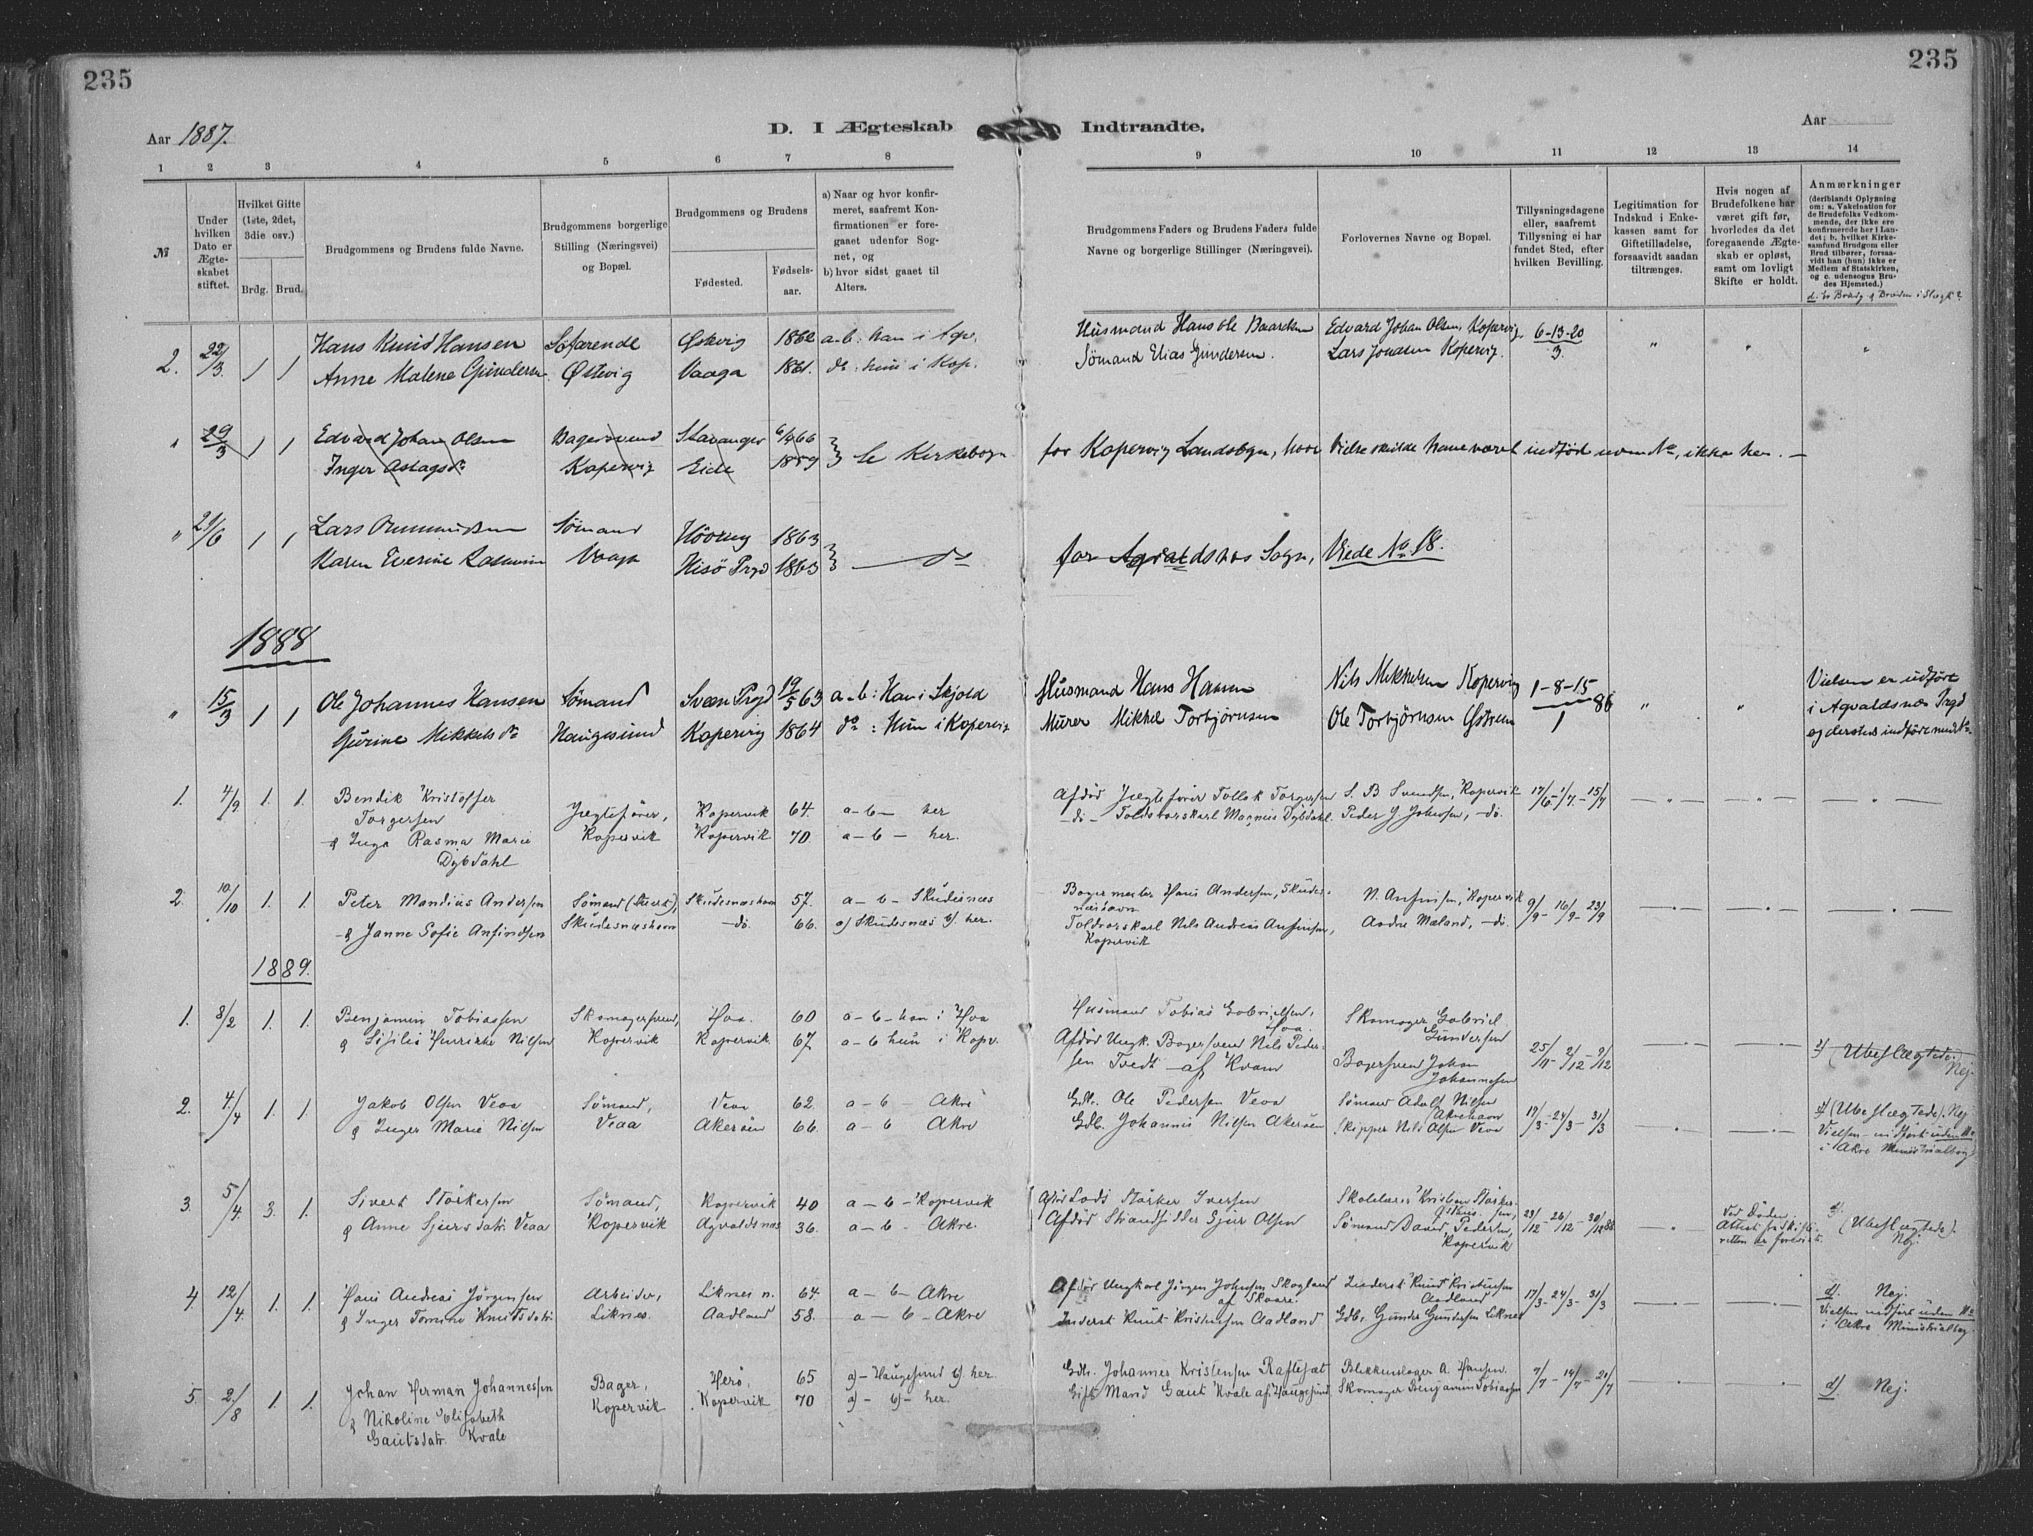 235
235
Aar 1887.
D. I Ægteskab Indtraadte,
Aar
1 2 3 4 5 6 7 8 9 10 11 12 13 14
№
Under hvilken Dato er Ægteskabet stiftet.
Hvilket Gifte (1ste, 2det, 3die osv.)
Brdg. Brud.
Brudgommens og Brudens fulde Navne.
Brudgommens borgerlige Stilling (Næringsvei) og Bopæl.
Brudgommens og Brudens
Fødested.
Fødselsaar.
a) Naar og hvor konfirmeret, saafremt Konfirmationen er foregaaet udenfor Sognet, og
b) hvor sidst gaaet til Alters.
Brudgommens Faders og Brudens Faders fulde Navne og borgerlige Stillinger (Næringsvei).
Forlovernes Navne og Bopæl.
Tillysningsdagene eller, saafremt Tillysning ei har fundet Sted, efter hvilken Bevilling.
Legitimation for Indskud i Enkekassen samt for Giftetilladelse, forsaavidt saadan tiltrænges.
Hvis nogen af Brudefolkene har været gift før, hvorledes da det foregaaende Ægteskab er opløst, samt om lovligt Skifte er holdt.
Anmærkninger (deriblandt Oplysning om: a. Vakcination for de Brudefolks Vedkommende, der ikke ere konfirmerede her i Landet; b. hvilket Kirkesamfund Brudgom eller Brud tilhører, forsaavidt han (hun) ikke er Medlem af Statskirken, og c. udensogns Brudes Hjemsted.)
2. 22/3 1 1 Hans Knud Hansen Søfarende Østvig 1862 a-b: han i Agv. Husmand Hans Ole Baardsen Edvard Johan Olsen, Kopervig 6-13-20/3. " " "
Anne Malene Gundersen Østvig Vaaga 1861. do: hun i Kop. Sømand Elias Gundersen. Lars Jonasen Kopervig.
" 29/3 1 1 Edvard Johan Olsen Bagersvend Stavanger 66 Se Kirkebogen for Kopervig Landsogn, hvor Vielse skulde have været indført uden No, ikke her. —
Inger Aslagsdr Kopervig Eide 1859
" 21/6 1 1 Lars Ommundsen Sømand 1863 — do for Agvaldsnes Sogn, Viede No 18.
Karen Everine Vaaga Hisø Prgd 1863
1888
" 15/3 1 1 Ole Johannes Hansen Sømand Sveen Prgd 19/5 63 a-b: Han i Skjold Husmand Hans Hansen Nils Mikkelsen Kopervig 1-8-15/1 88 " " Vielsen er udført
Gurine Mikkelsdr Haugesund Kopervig 1864 do: Hun i Kopervig Murer Mikkel Torbjørnsen Ole Torbjørnsen Østrem i Agvaldsnes Prgd
og dersteds indført med No.
1. 4/9 1. 1. Bendik Kristoffer Torgersen Jægtefører, Kopervik 64. a-b- her Afdød Jægtefører Tollak Torgersen S. B. Svendsen, Kopervik 17/6- 1/7- 15/7 — " — — " — — " —
& Inga Rasma Marie Dybdahl Kopervik Kopervik 70. a-b- her. -do- Toldvorskarl Magnus Dybdahl. Peder J Johnsen, -do.
2. 10/10 1. 1. Peter Mandius Andersen Sømand (Stuert), Skudesnæshavn 57. a-b- Skudesnæs Bagermester Hans Andersen, Skudesnæshavn N. Anfinsen, Kopervik 9/9- 16/9- 23/9 — " — — " — — " —
& Janne Sofie Anfindsen Skudesnæshavn -do. 66. a) Skudesnæs b) her. Toldvorskarl Nils Andreas Anfinsen, Kopervik Aadne Mæland, -do.
1889.
1. 8/2 1. 1. Benjamin Tobiassen Skomagersvend, Hoa. 60 a-b- han i Hoa Husmand Tobias Gabrielsen, Hoa. Skomager Gabriel Gundersen 25/11- 2/12- 9/12 — " — — " — d) (Ubeslægtede). Nej.
& Henrikke Nilsen Kopervik Kopervik 67. a-b hun i Kopv. Afdød Ungk. Bagersvend Nils Pedersen Tvedt af Kvam Bagersvend Johan Johannesen
2. 4/4 1. 1. Jakob Olsen Veaa Sømand, Veaa 62. a-b- Akre Gdb. Ole Pedersen Veaa Sømand Adolf Nilsen Akrehavn 17/3- 24/3- 31/3 — " — — " — d) (Ubeslægtede). Nej
& Inger Marie Nilsen Veaa Akerøen 66. a-b Akre Gdb. Johannes Nilsen Akerøen Skipper Nils Olsen Veaa Vielsen indført uden No
i Akre Ministrialbog
3. 5/4. 3. 1. Sivert Størkersen Sømand, Kopervik 40 a-b- Kopervik Afdød Lods Størker Iversen Skolelærer Kristian Størkersen, 23/12- 26/12- 30/12 88 — " — Ved Døden. Attest fra Skifteretten er forevist. d: (Ubeslægtede). Nej.
& Anne Sjursdatr. Veaa Kopervik Agvaldsnæs 36. a-b- Akre. Afdød Strandsidder Sjur Olsen Sømand David Pedersen, Kopervik
4. 12/4. 1. 1. Hans Andreas Jørgensen Arbeider, Liknes n. 64. a-b- Akre Afdød Ungkarl Jørgen Johnsen Skogland af Skaare Inderst Knud Kristensen Aadland 17/3- 24/3- 31/3 — " — — " — d). Nej.
& Inger Tomine Knutsdatr. Liknes. Aadland 58. a-b- Akre Inderst Knut Kristensen Aadland Gdb. Gunder Gundersen Liknes Vielsen indført uden No
i Akre Ministrialbog
5. 2/8 1. 1. Johan Herman Johannessen Bager, Herø, 65 a)- Haugesund b) her. Gdb. Johannes Kristensen Raftesæt Blikkenslager A. Hansen. 7/7- 14/7- 21/7 — " — — " — d) Nej.
& Nikoline Elisabeth Gautsdatr. Kvale Kopervik Kopervik 70 a)- b)- her. Gift Mand Gaut Kvale af Haugesund Skomager Benjamin Tobiassen